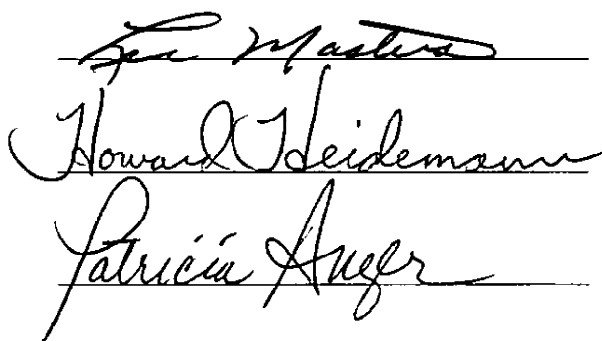 Masters
Howard Heidemann
Patricia Auger